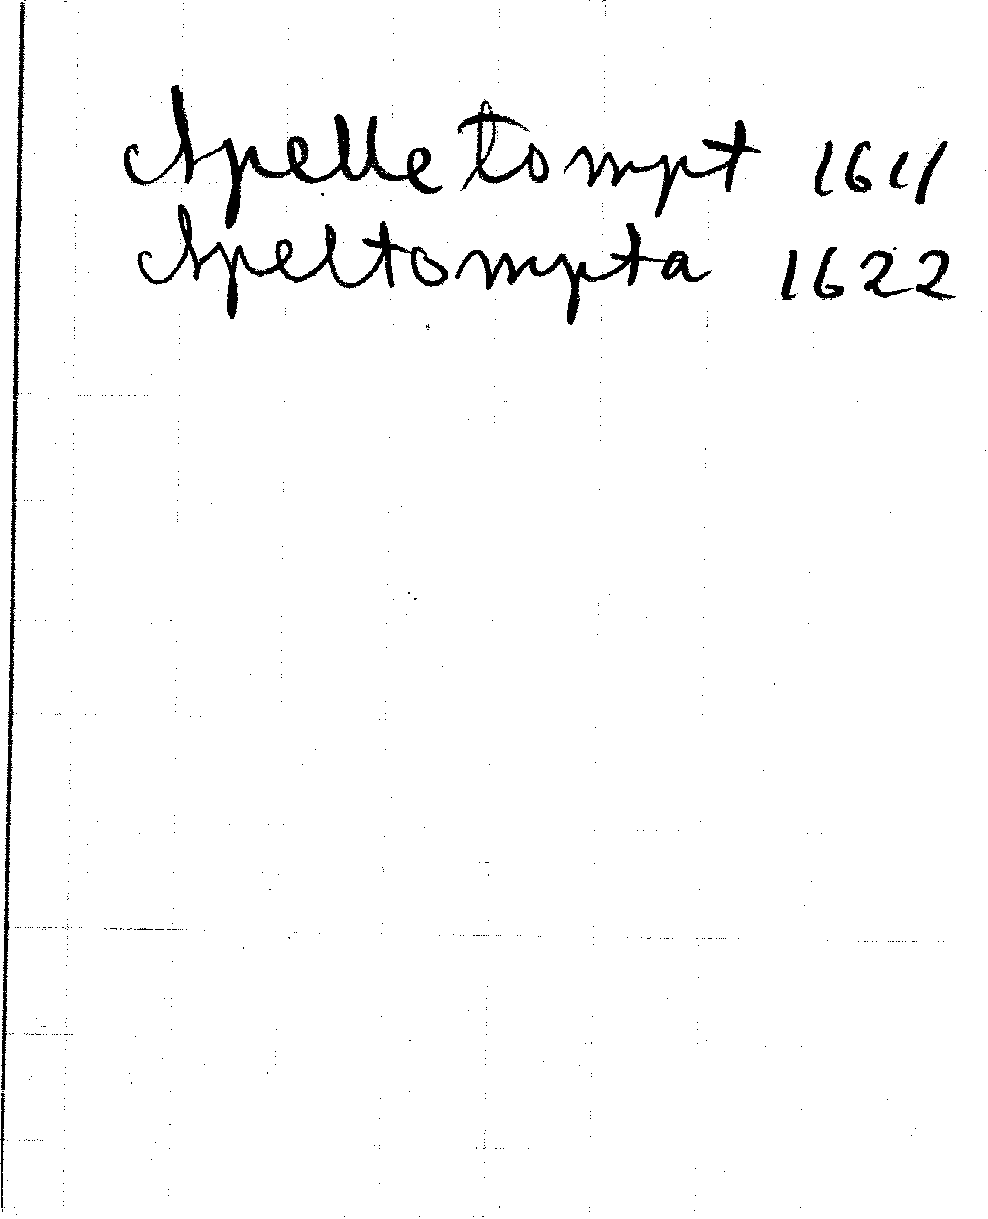 Apelletompt 1611
Apeltompta 1622